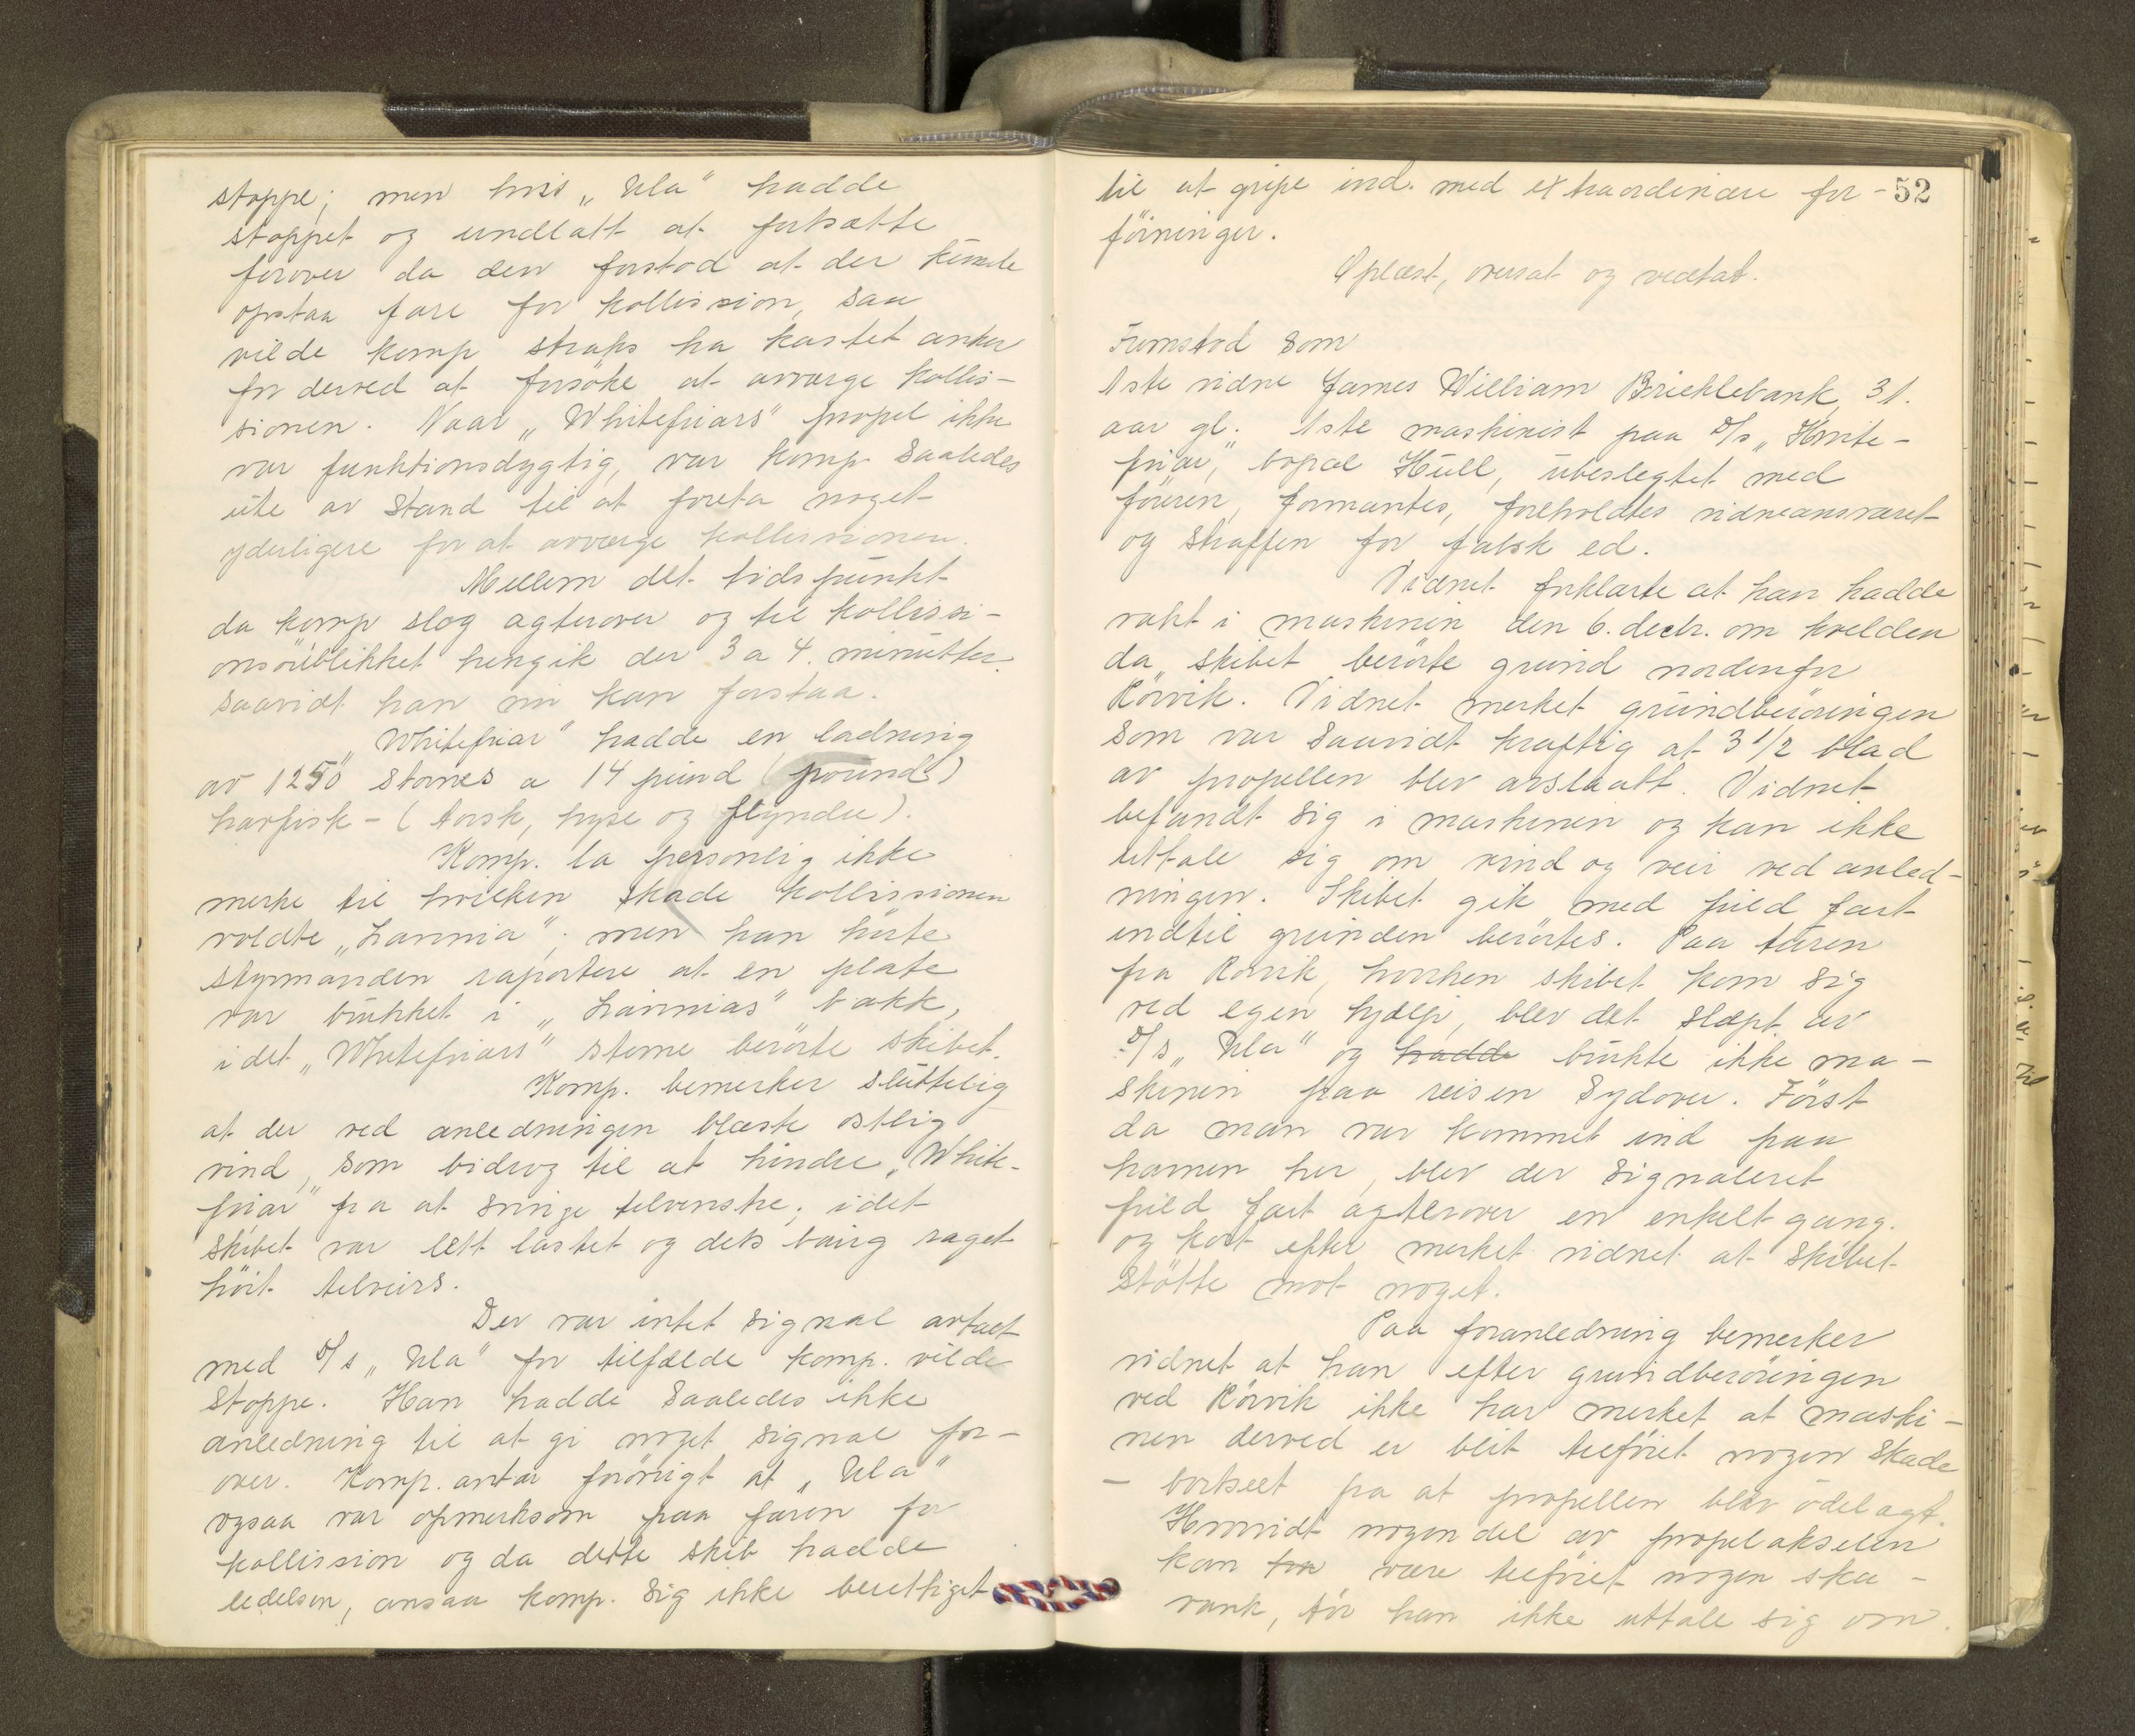 stoppe; men hvis „Ula" hadde
stoppet og undlatt at fortsætte
forover da den forstod at der kunde
opstaa fare for kollission, saa
vilde komp straks ha kastet anker
for derved at forsöke at avværge kollis-
sionen. Naar „Whitefriars" propel ikke
var funktionsdygtig, var komp. saaledes
ute av stand til at foreta noget
yderligere for at avværge kollissionen.
Mellem det tidspunkt
da komp slog agterover og til kollissi-
onsöieblikket hengik der 3 a 4. minutter.
saavidt han nu kan forstaa.
„Whitefriar" hadde en ladning
av 1250 stones a 14 pund (pounds)
havfisk - (torsk, hyse og flyndre).
Komp. la personlig ikke
merke til hvilken skade kollissionen
voldte „Lannia"; men han hörte
styrmanden raportere at en plate
var brukket i „Lannias" bakk,
idet „Whitefriars" stevne berörte skibet.
Komp. bemerker sluttelig
at der ved anledningen blæste ostlig
vind, som bidrog til at hindre „White-
friar" fra at svinge tilvenstre; idet
skibet var lett lastet og dets baug raget
höit tilveirs.
Der var intet signal avtalt
med D/s „Ula" for tilfælde komp. vilde
stoppe. Han hadde saaledes ikke
anledning til at gi noget signal for-
over. Komp. antar forövrigt at „Ula"
ogsaa var opmerksom paa faren for
kollission og da dette skib hadde
ledelsen, ansaa komp. sig ikke berettiget
52
til at gripe ind. med extraordinære for-
föininger.
Oplæst, oversat og vedtat.
Fremstod som
1ste vidne James William Bricklebank, 31.
aar gl. 1ste maskinist paa D/s „Hvite-
friar," bopæl Hull, ubeslegtet med
föreren, formantes, foreholdtes vidneansvaret
og straffen for falsk ed.
Vidnet forklarte at han hadde
vakt i maskinen den 6. decbr. om kvelden
da skibet berörte grund nordenfor
Rörvik. Vidnet merket grundberöringen
som var saavidt kraftig at 3 1/2 blad
av propellen blev avslaatt. Vidnet
befandt sig i maskinen og kan ikke
uttale sig om vind og veir ved anled-
ningen. Skibet gik med fuld fart
indtil grunden berörtes. Paa turen
fra Rörvik, hvorhen skibet kom sig
ved egen hjælp, blev det slæpt av
D/s „Ula" og hadde brukte ikke ma-
skinen paa reisen sydover. Först
da man var kommet ind paa
havnen her, blev der signaleret
fuld fart agterover en enkelt gang.
og kort efter merket vidnet at skibet
stötte mot noget.
Paa foranledning bemerker
vidnet at han efter grundberöringen
ved Rörvik ikke har merket at maski-
nen derved er blit tilföiet nogen skade
- bortseet fra at propellen blev ödelagt.
Hvorvidt nogen del av propelakselen
kan ha være tilföiet nogen ska-
vank, tör han ikke uttale sig om.